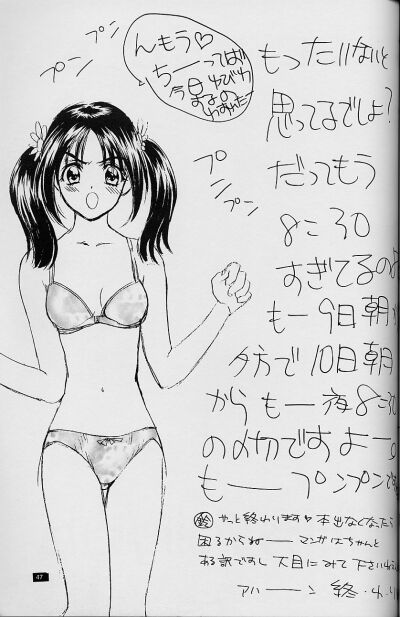 プン
プン
んもう♡
ちーってば!
今日
プン
プン
プン
もったいないと
思ってるでしょ?
だってもう
8:30
すぎてるの
もー9日朝
夕方で10日朝
からもー夜8:30
の〆切ですよー
もープンプン
鈴 やっと終わります♡本出なくなったら
困るからねーマンガはちゃんと
ある訳ですし大目にみて下さい
アハーン 終
47